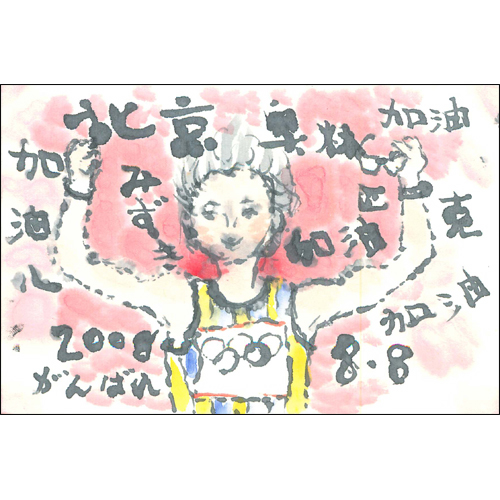 北京奥林匹克
加油
加油
みずき
加油
加油
2008
8.8
がんばれ